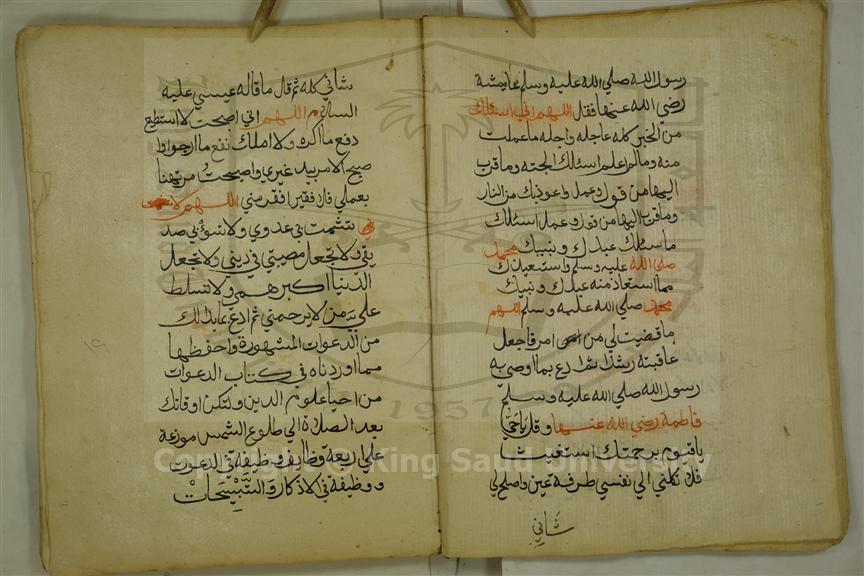 رسول الله صلي الله عليه وسلم عايشة
رضي الله عنها فقال اللهم اني اسئلك
من الخير كله عاجله واجله ما عملت
منه ومالم اعلم اسئلك الجنه وما قرب
اليها من قول وعمل واعوذبك من النار
وما قرب اليها من قول وعمل اسئلك
ما سئلك عبدك ونبيك محمد
صلي الله عليه وسلم واستعيذك
مما استعاذ منه عبدك ونبيك
محمد صلي الله عليه وسلم اللهم
ما قضيت لي من امر فاجعل
عاقبته رشدا ثم ادع بما اوصي به
رسول الله صلي الله عليه وسلم
فاطمة رضي الله عنها وقل ياحي
ياقيوم برحمتك استغيث
فلا تكلني الي نفسي طرفة عين واصلح لي
شاني
شاني كله ثم قل ما قاله عيسي عليه
السلام اللهم اني اصبحت لا استطيع
دفع ما اكره ولا املك نفع ما ارجوا وا
صبح الامر بيد غيري واصبحت مرتهنا
بعملي فلا فقير افقر مني اللهم لا
تشمت بي عدوي ولا تسؤ بي صد
يقي ولا تجعل مصيبتي في ديني ولا تجعل
الدنيا اكبر همي ولا تسلط
علي من لا يرحمني ثم ادع بما بدا لك
من الدعوات المشهورة واحفظها
مما اوردناه في كتاب الدعوات
من احيا علوم الدين ولتكن اوقاتك
بعد الصلاة الي طلوع الشمس موزعة
علي اربعة وظايف وظيفة في الدعوت
ووظيفة في الاذكار والتسبيحات
1957
Copyright © King Saud University